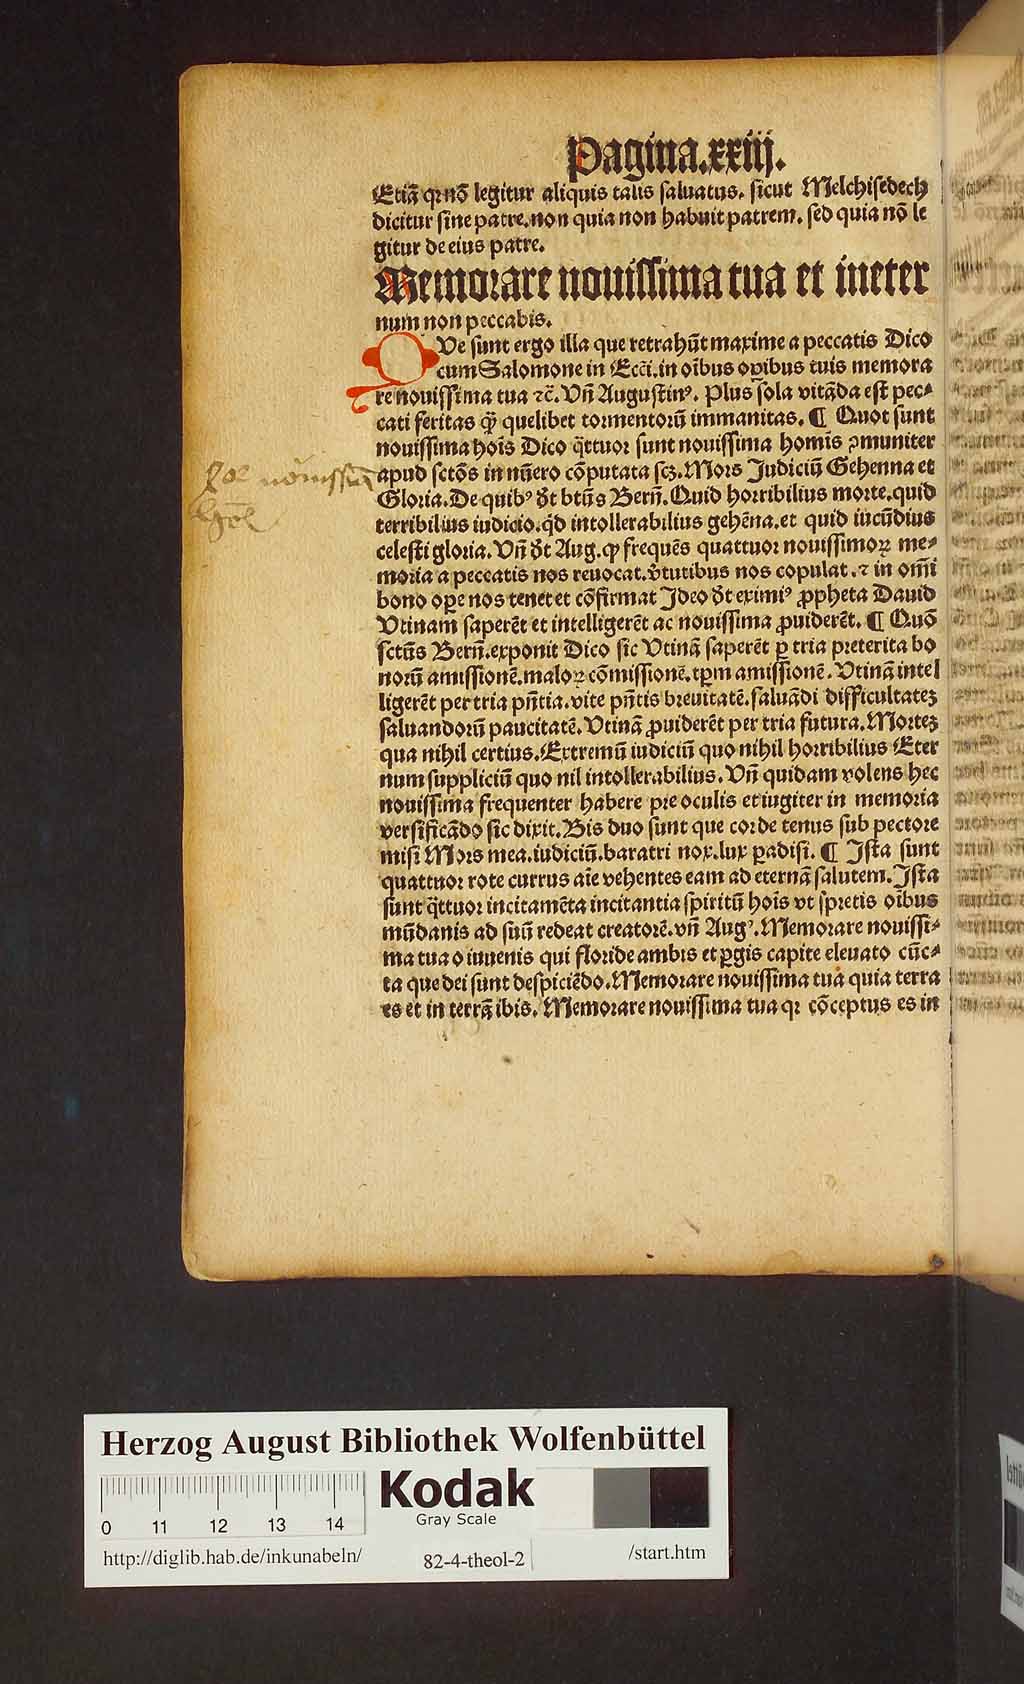 Pagina.xxiij.
Etiā qꝛ nō legitur aliquis talis saluatus. sicut Melchisedech
dicitur sine patre. non quia non habuit patrem. sed quia nō le
gitur de eius patre.
Memorare nouissima tua et ineter
num non peccabis.
QVe sunt ergo illa que retrahūt maxime a peccatis Dico
cum Salomone in Ecci. in oībus oꝑibus tuis memora
re nouissima tua ⁊c̄. Vn̄ Augustinꝰ. Plus sola vitāda est pec⸗
cati feritas qꝫ̄ quelibet tormentorū immanitas. ¶ Quot sunt
nouissima hoīs Dico q̄ttuor sunt nouissima homīs ꝯmuniter
apud sctōs in nūero cōputata scꝫ. Mors Judiciū Gehenna et
Gloria. De quibꝰ d̄t btūs Bern̄. Quid horribilius morte. quid
terribilius iudicio. qͥd intollerabilius gehēna. et quid iucūdius
celesti gloria. Vn̄ d̄t Aug. ꝙ frequēs quattuor nouissimoꝝ me⸗
moria a peccatis nos reuocat. v̄tutibus nos copulat. ⁊ in om̄i
bono oꝑe nos tenet et cōfirmat Jdeo d̄t eximiꝰ ꝓpheta Dauid
Vtinam saperēt et intelligerēt ac nouissima ꝓuiderēt. ¶ Quō
sctūs Bern̄. exponit Dico sic Vtinā saperēt ꝑ tria preterita bo
norū amissionē. maloꝝ cōmissionē. tꝑm amissionē. Vtinā intel
ligerēt per tria pn̄tia. vite pn̄tis breuitatē. saluādi difficultateꝫ
saluandorū paucitatē. Vtinā ꝓuiderēt per tria futura. Morteꝫ
qua nihil certius. Extremū iudiciū quo nihil horribilius Eter
num suppliciū quo nil intollerabilius. Vn̄ quidam volens hec
nouissima frequenter habere pre oculis et iugiter in memoria
versificādo sic dixit. Bis duo sunt que corde tenus sub pectore
misi Mors mea. iudiciū. baratri nox. lux ꝑadisi. ¶ Jsta sunt
quattuor rote currus aīe vehentes eam ad eternā salutem. Jsta
sunt q̄ttuor incitamēta incitantia spiritū hoīs vt spretis oībus
mūdanis ad suū redeat creatorē. vn̄ Augꝰ. Memorare nouissi⸗
ma tua o iuuenis qui floride ambis et ꝑgis capite eleuato cūc⸗
ta que dei sunt despiciēdo. Memorare nouissima tua quia terra
es et in terrā ibis. Memorare nouissima tua qꝛ cōceptus es in
Herzog August Bibliothek Wolfenbüttel
Kodak
Gray Scale
0 11 12 13 14
http://diglib.hab.de/inkunabeln/ 82-4-theol-2 /start.htm